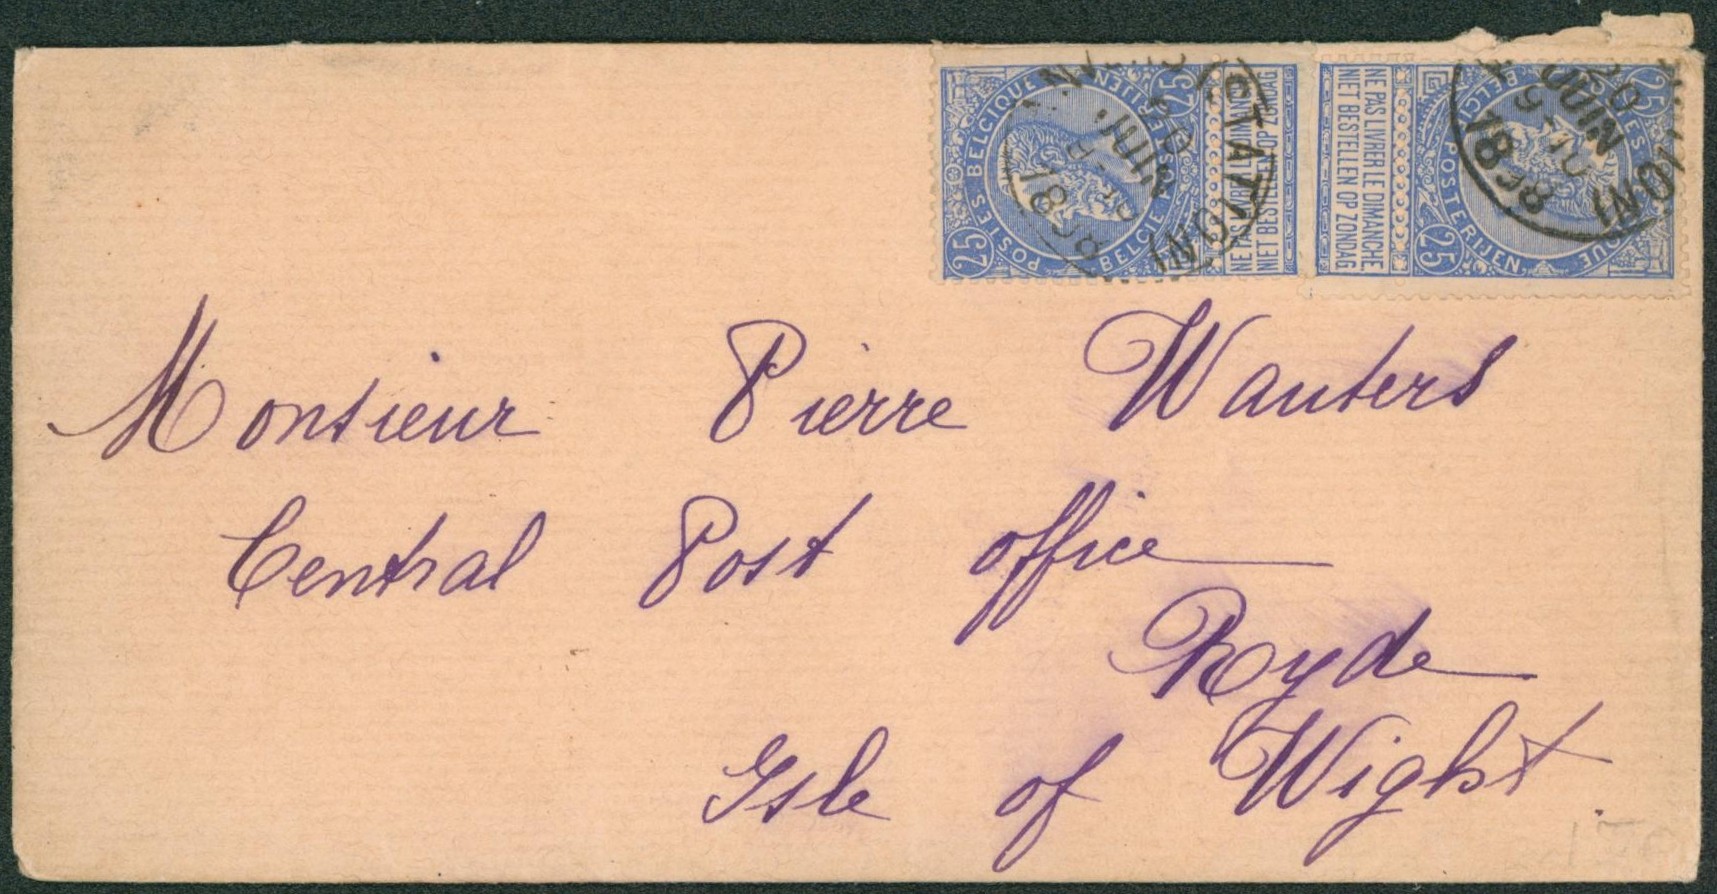 25 POSTES BELGIQUE
BELGIË POSTERIJEN 25
NE PAS LIVRER LE DIMANCHE
NIET BESTELLEN OP ZONDAG
NE PAS LIVRER LE DIMANCHE
NIET BESTELLEN OP ZONDAG
25 POSTES
BELGIQUE
POSTERIJEN 25
(STATION)
20
JUIN
1898
20
JUIN
1898
Monsieur Pierre Wauters
Central Post office
Ryde
Isle of Wight.